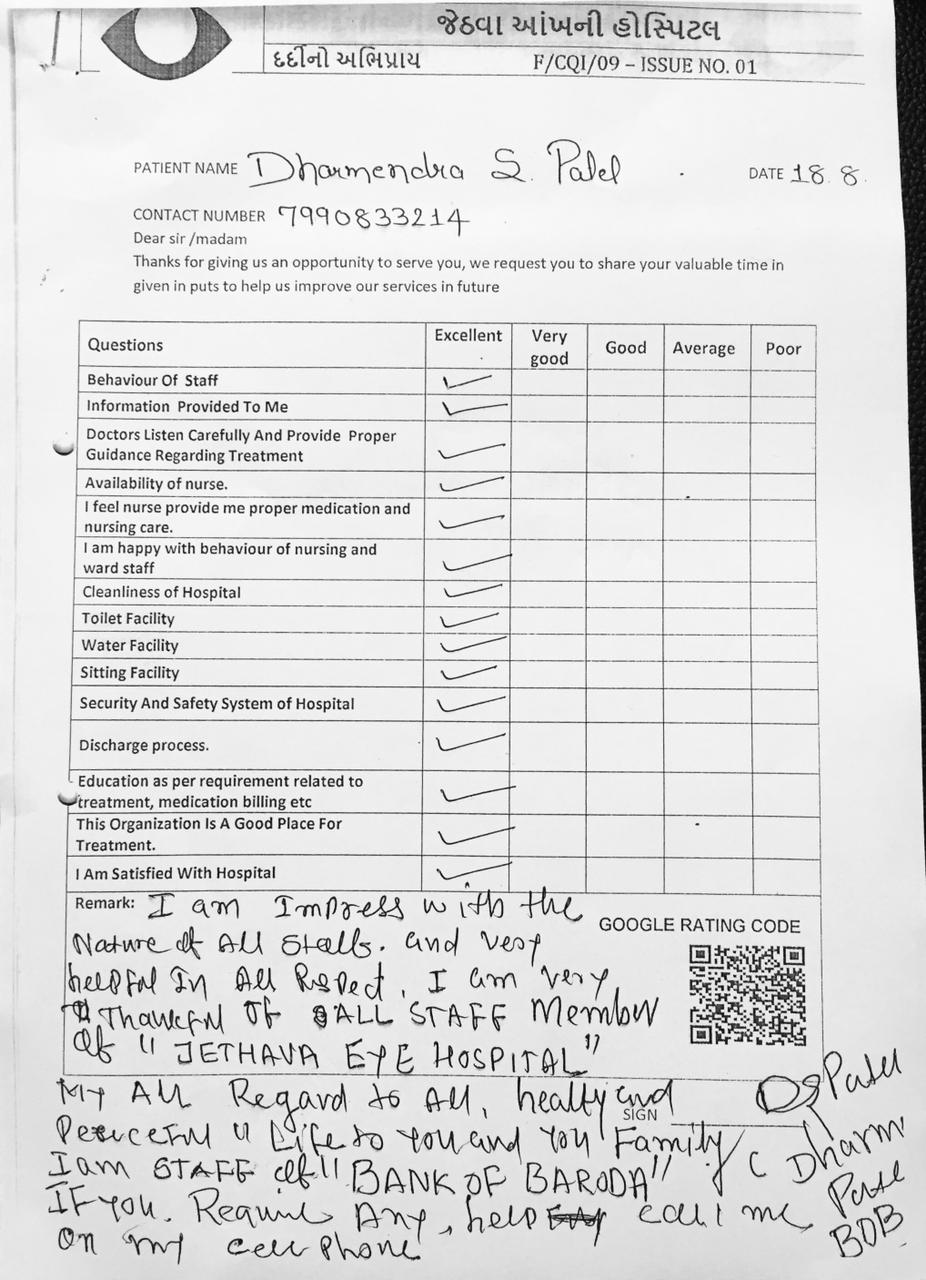 જેઠવા આંખની હોસ્પિટલ
દર્દીનો અભિપ્રાય F/CQI/09 – ISSUE NO. 01
PATIENT NAME Dharmendra S. Patel DATE 18. 8.
CONTACT NUMBER 7990833214
Dear sir /madam
Thanks for giving us an opportunity to serve you, we request you to share your valuable time in
given in puts to help us improve our services in future
Questions Excellent Very good Good Average Poor
Behaviour Of Staff ✓
Information Provided To Me ✓
Doctors Listen Carefully And Provide Proper
Guidance Regarding Treatment ✓
Availability of nurse. ✓
I feel nurse provide me proper medication and
nursing care. ✓
I am happy with behaviour of nursing and
ward staff ✓
Cleanliness of Hospital ✓
Toilet Facility ✓
Water Facility ✓
Sitting Facility ✓
Security And Safety System of Hospital ✓
Discharge process. ✓
Education as per requirement related to
treatment, medication billing etc ✓
This Organization Is A Good Place For
Treatment. ✓
I Am Satisfied With Hospital ✓
Remark: I am Impress with the
GOOGLE RATING CODE
Nature of All Staffs. and very
helpful In All Respect. I am very
Thankful OF ALL STAFF Member
of "JETHAVA EYE HOSPITAL"
My All Regard to All, healty and
SIGN
Peaceful Life to You and You Family
I am STAFF of "BANK OF BARODA"
IF You. Require Any, help call me
on my cell phone
Patel
Dharm
BOB